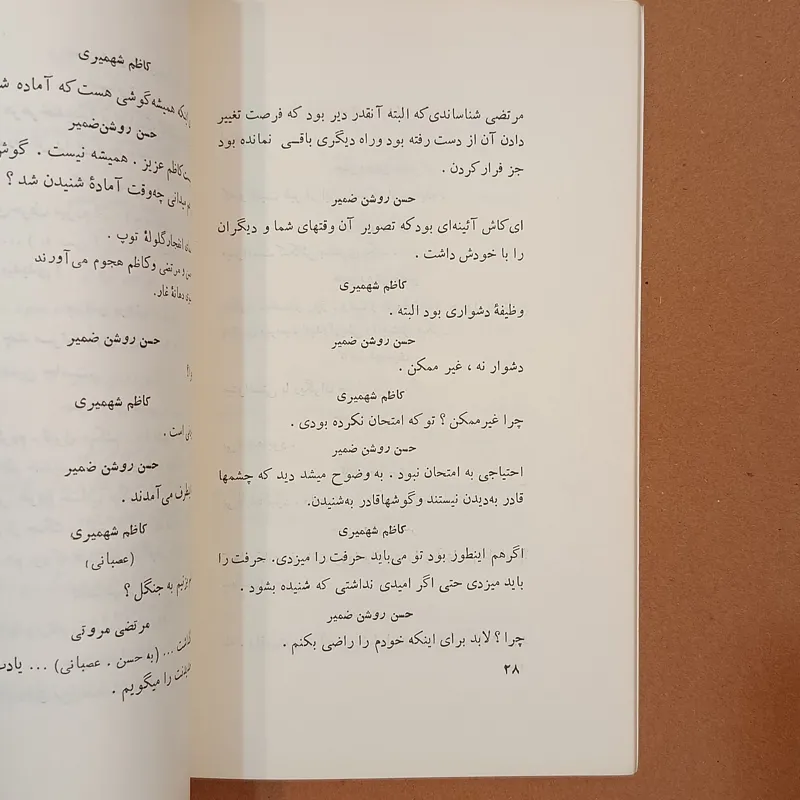 مرتضی شناساندی که البته آنقدر دیر بود که فرصت تغییر
دادن آن از دست رفته بود وراه دیگری باقی نمانده بود
جز فرار کردن .
حسن روشن ضمیر
ای کاش آئینه‌ای بود که تصویر آن وقتهای شما و دیگران
را با خودش داشت .
کاظم شهمیری
وظیفهٔ دشواری بود البته .
حسن روشن ضمیر
دشوار نه ، غیر ممکن .
کاظم شهمیری
چرا غیرممکن ؟ تو که امتحان نکرده بودی .
حسن روشن ضمیر
احتیاجی به امتحان نبود . به وضوح میشد دید که چشمها
قادر به‌دیدن نیستند و گوشها قادر به‌شنیدن.
کاظم شهمیری
اگر هم اینطور بود تو می‌باید حرفت را میزدی. حرفت را
باید میزدی حتی اگر امیدی نداشتی که شنیده بشود .
حسن روشن ضمیر
چرا ؟ لابد برای اینکه خودم را راضی بکنم .
۲۸
کاظم شهمیری
اینکه همیشه گوشی هست که آماده
حسن روشن‌ضمیر
کاظم عزیز . همیشه نیست . گوش
میدانی چه‌وقت آمادهٔ شنیدن شد ؟
انفجار گلولهٔ توپ .
و مرتضی و کاظم هجوم می‌آورند
دهانهٔ غار.
حسن روشن ضمیر
کاظم شهمیری
است .
حسن روشن ضمیر
می‌آمدند .
کاظم شهمیری
(عصبانی)
بزنیم به جنگل ؟
مرتضی مروتی
... (به حسن . عصبانی) ...
را میگویم .